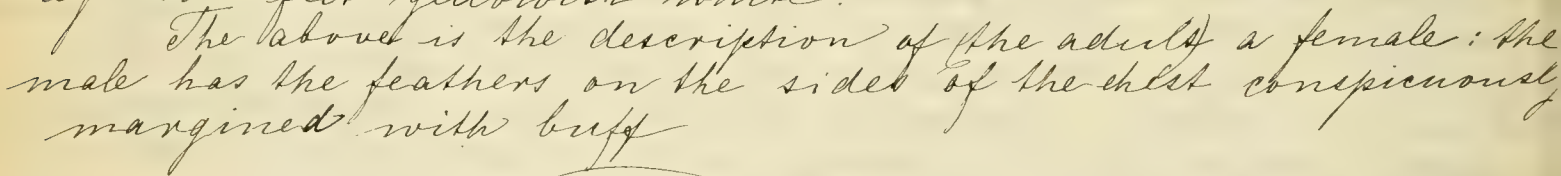 feet yellowish white.
The above is the description of (the adult) a female: the
male has the feathers on the sides of the chest conspicuously
margined with buff